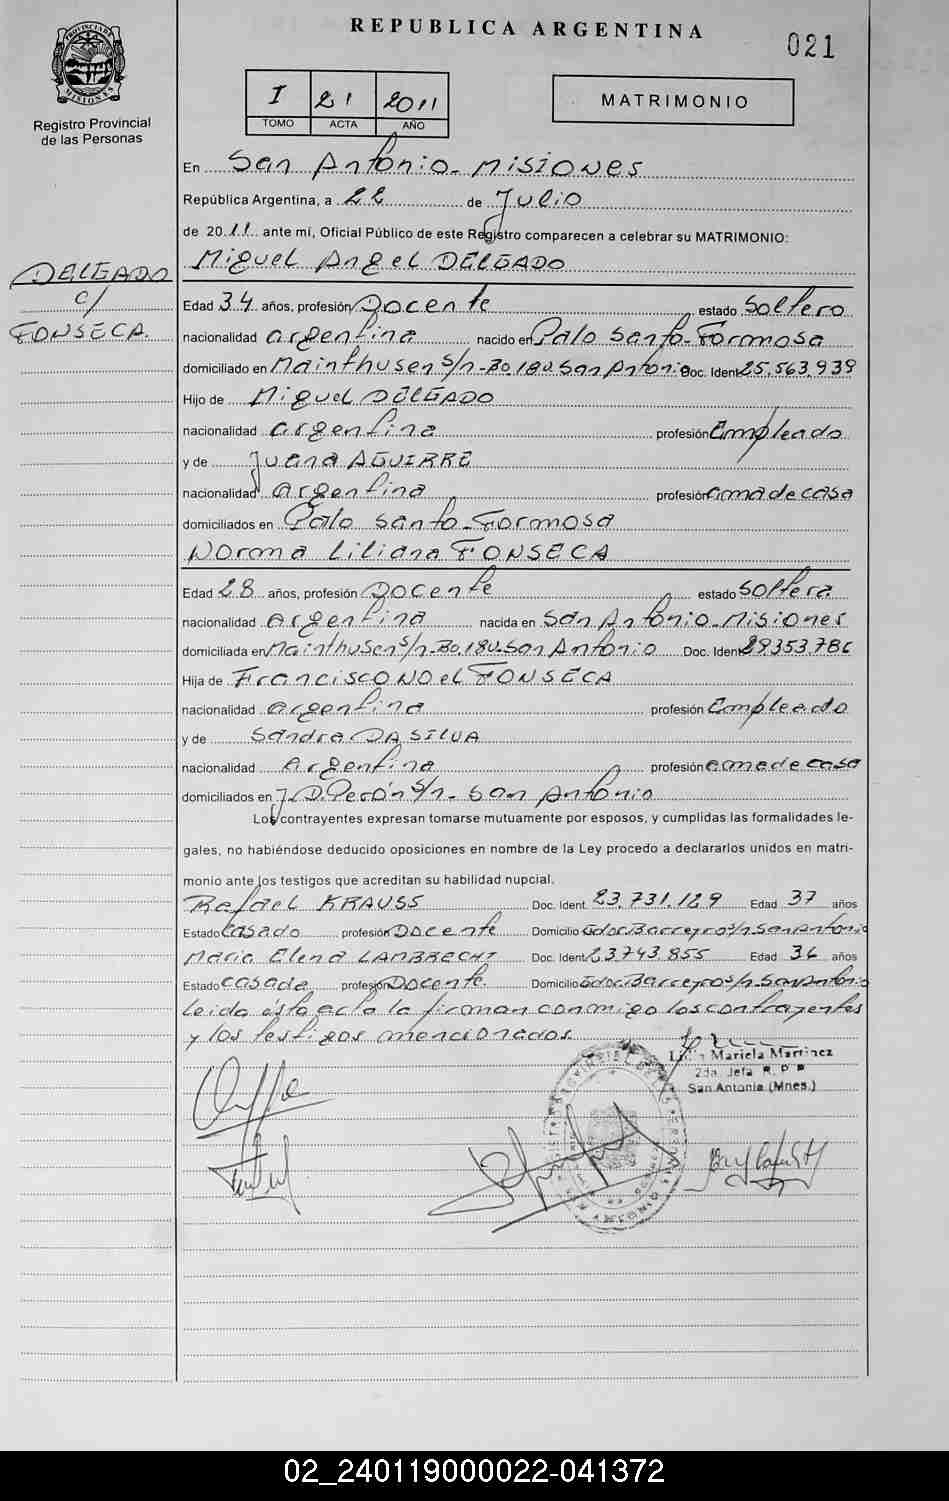 REPUBLICA ARGENTINA
021
PROVINCIA DE MISIONES
Registro Provincial
de las Personas
I 21 2011
TOMO ACTA AÑO
MATRIMONIO
En San Antonio - Misiones
República Argentina, a 22 de Julio
de 2011 ante mí, Oficial Público de este Registro comparecen a celebrar su MATRIMONIO:
Miguel Angel DELGADO
DELGADO
c/
FONSECA.
Edad 34 años, profesión Docente estado Soltero
nacionalidad argentina nacido en Palo Santo - Formosa
domiciliado en Mainthusen s/n - Bo. 180. San Antonio Doc. Ident. 25.563.939
Hijo de Miguel DELGADO
nacionalidad argentina profesión Empleado
y de Juana AGUIRRE
nacionalidad argentina profesión ama de casa
domiciliados en Palo Santo - Formosa
Norma Liliana FONSECA
Edad 28 años, profesión Docente estado Soltera
nacionalidad Argentina nacida en San Antonio - Misiones
domiciliada en Mainthusen s/n - Bo. 180. San Antonio Doc. Ident. 29353.786
Hija de Francisco Noel FONSECA
nacionalidad argentina profesión Empleado
y de Sandra DA SILVA
nacionalidad Argentina profesión ama de casa
domiciliados en J.D. Perón s/n - San Antonio
Los contrayentes expresan tomarse mutuamente por esposos, y cumplidas las formalidades le-
gales, no habiéndose deducido oposiciones en nombre de la Ley procedo a declararlos unidos en matri-
monio ante los testigos que acreditan su habilidad nupcial.
Rafael KRAUSS Doc. Ident. 23.731.129 Edad 37 años
Estado Casado profesión Docente Domicilio Gdor. Barreyro s/n San Antonio
Maria Elena LAMBRECHT Doc. Ident. 23.743.855 Edad 36 años
Estado Casada profesión Docente. Domicilio Gdor. Barreyro s/n - San Antonio
Leida ésta acta la firman conmigo los contrayentes
y los testigos mencionados.
Mariela Martinez
2da. Jefa R. P. P.
San Antonio (Mnes.)
02_240119000022-041372